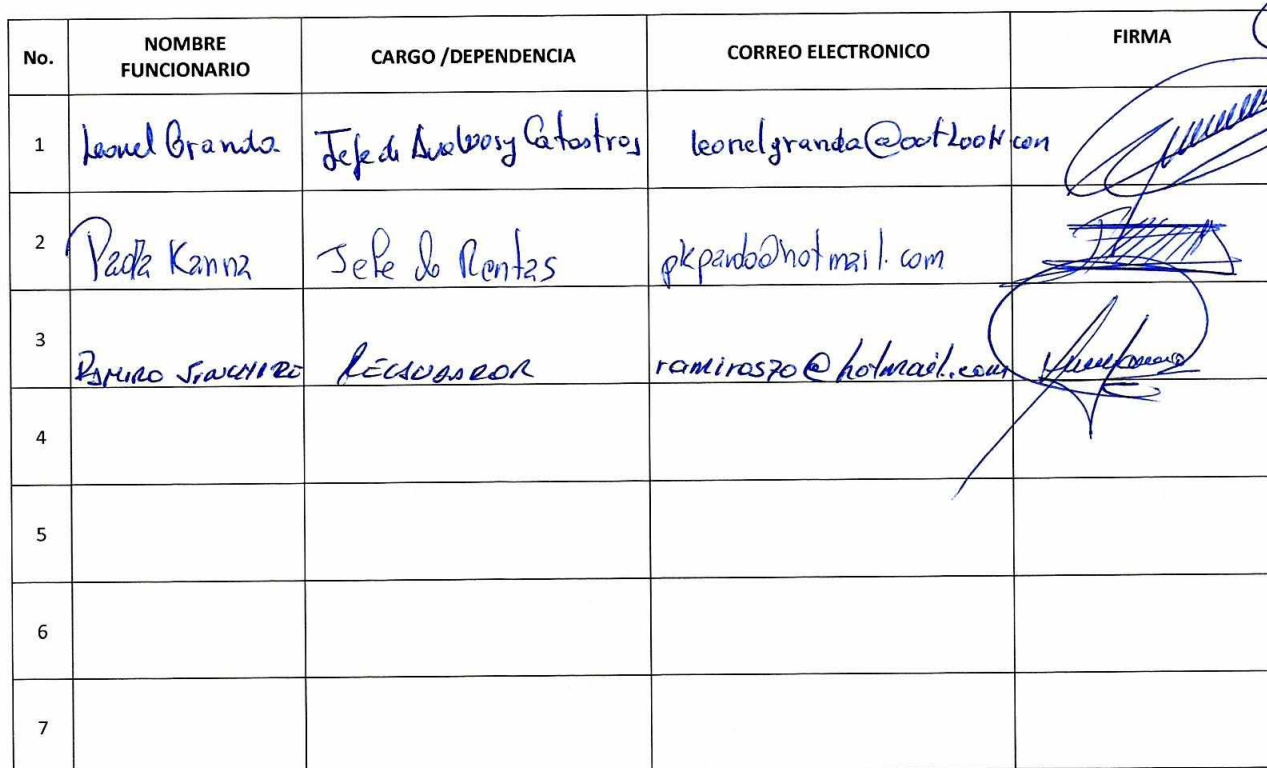 No. NOMBRE FUNCIONARIO CARGO /DEPENDENCIA CORREO ELECTRONICO FIRMA
1 Leonel Granda Jefe de Avaluos y Catastros leonelgranda@outlook.com
2 Paola Kanna Jefe de Rentas pkpardo@hotmail.com
3 RAMIRO RECAUDADOR ramiros70@hotmail.com
4
5
6
7